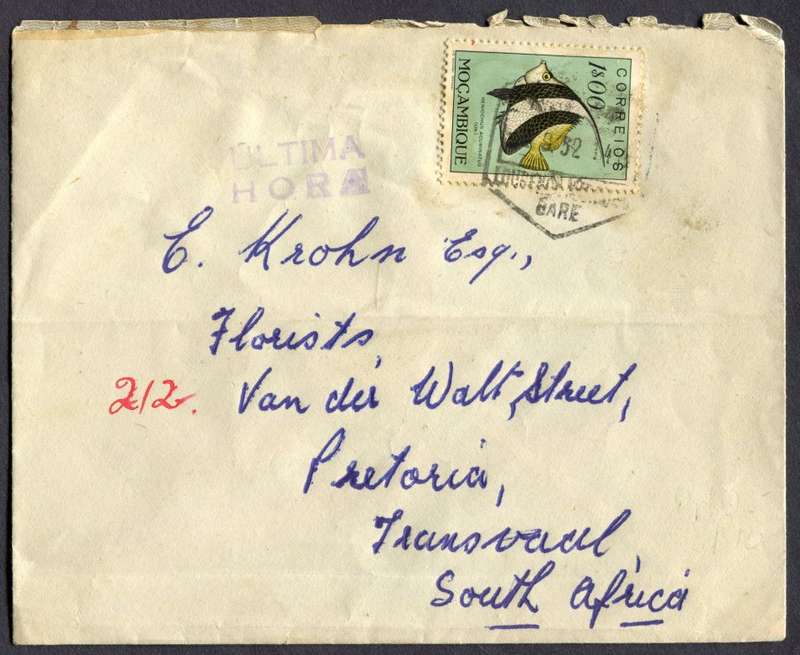 CORREIOS
1$00
MOÇAMBIQUE
52
GARE
ÚLTIMA
HORA
E. Krohn Esq.,
Florists,
212. Van der Walt, Street,
Pretoria,
Transvaal,
South Africa